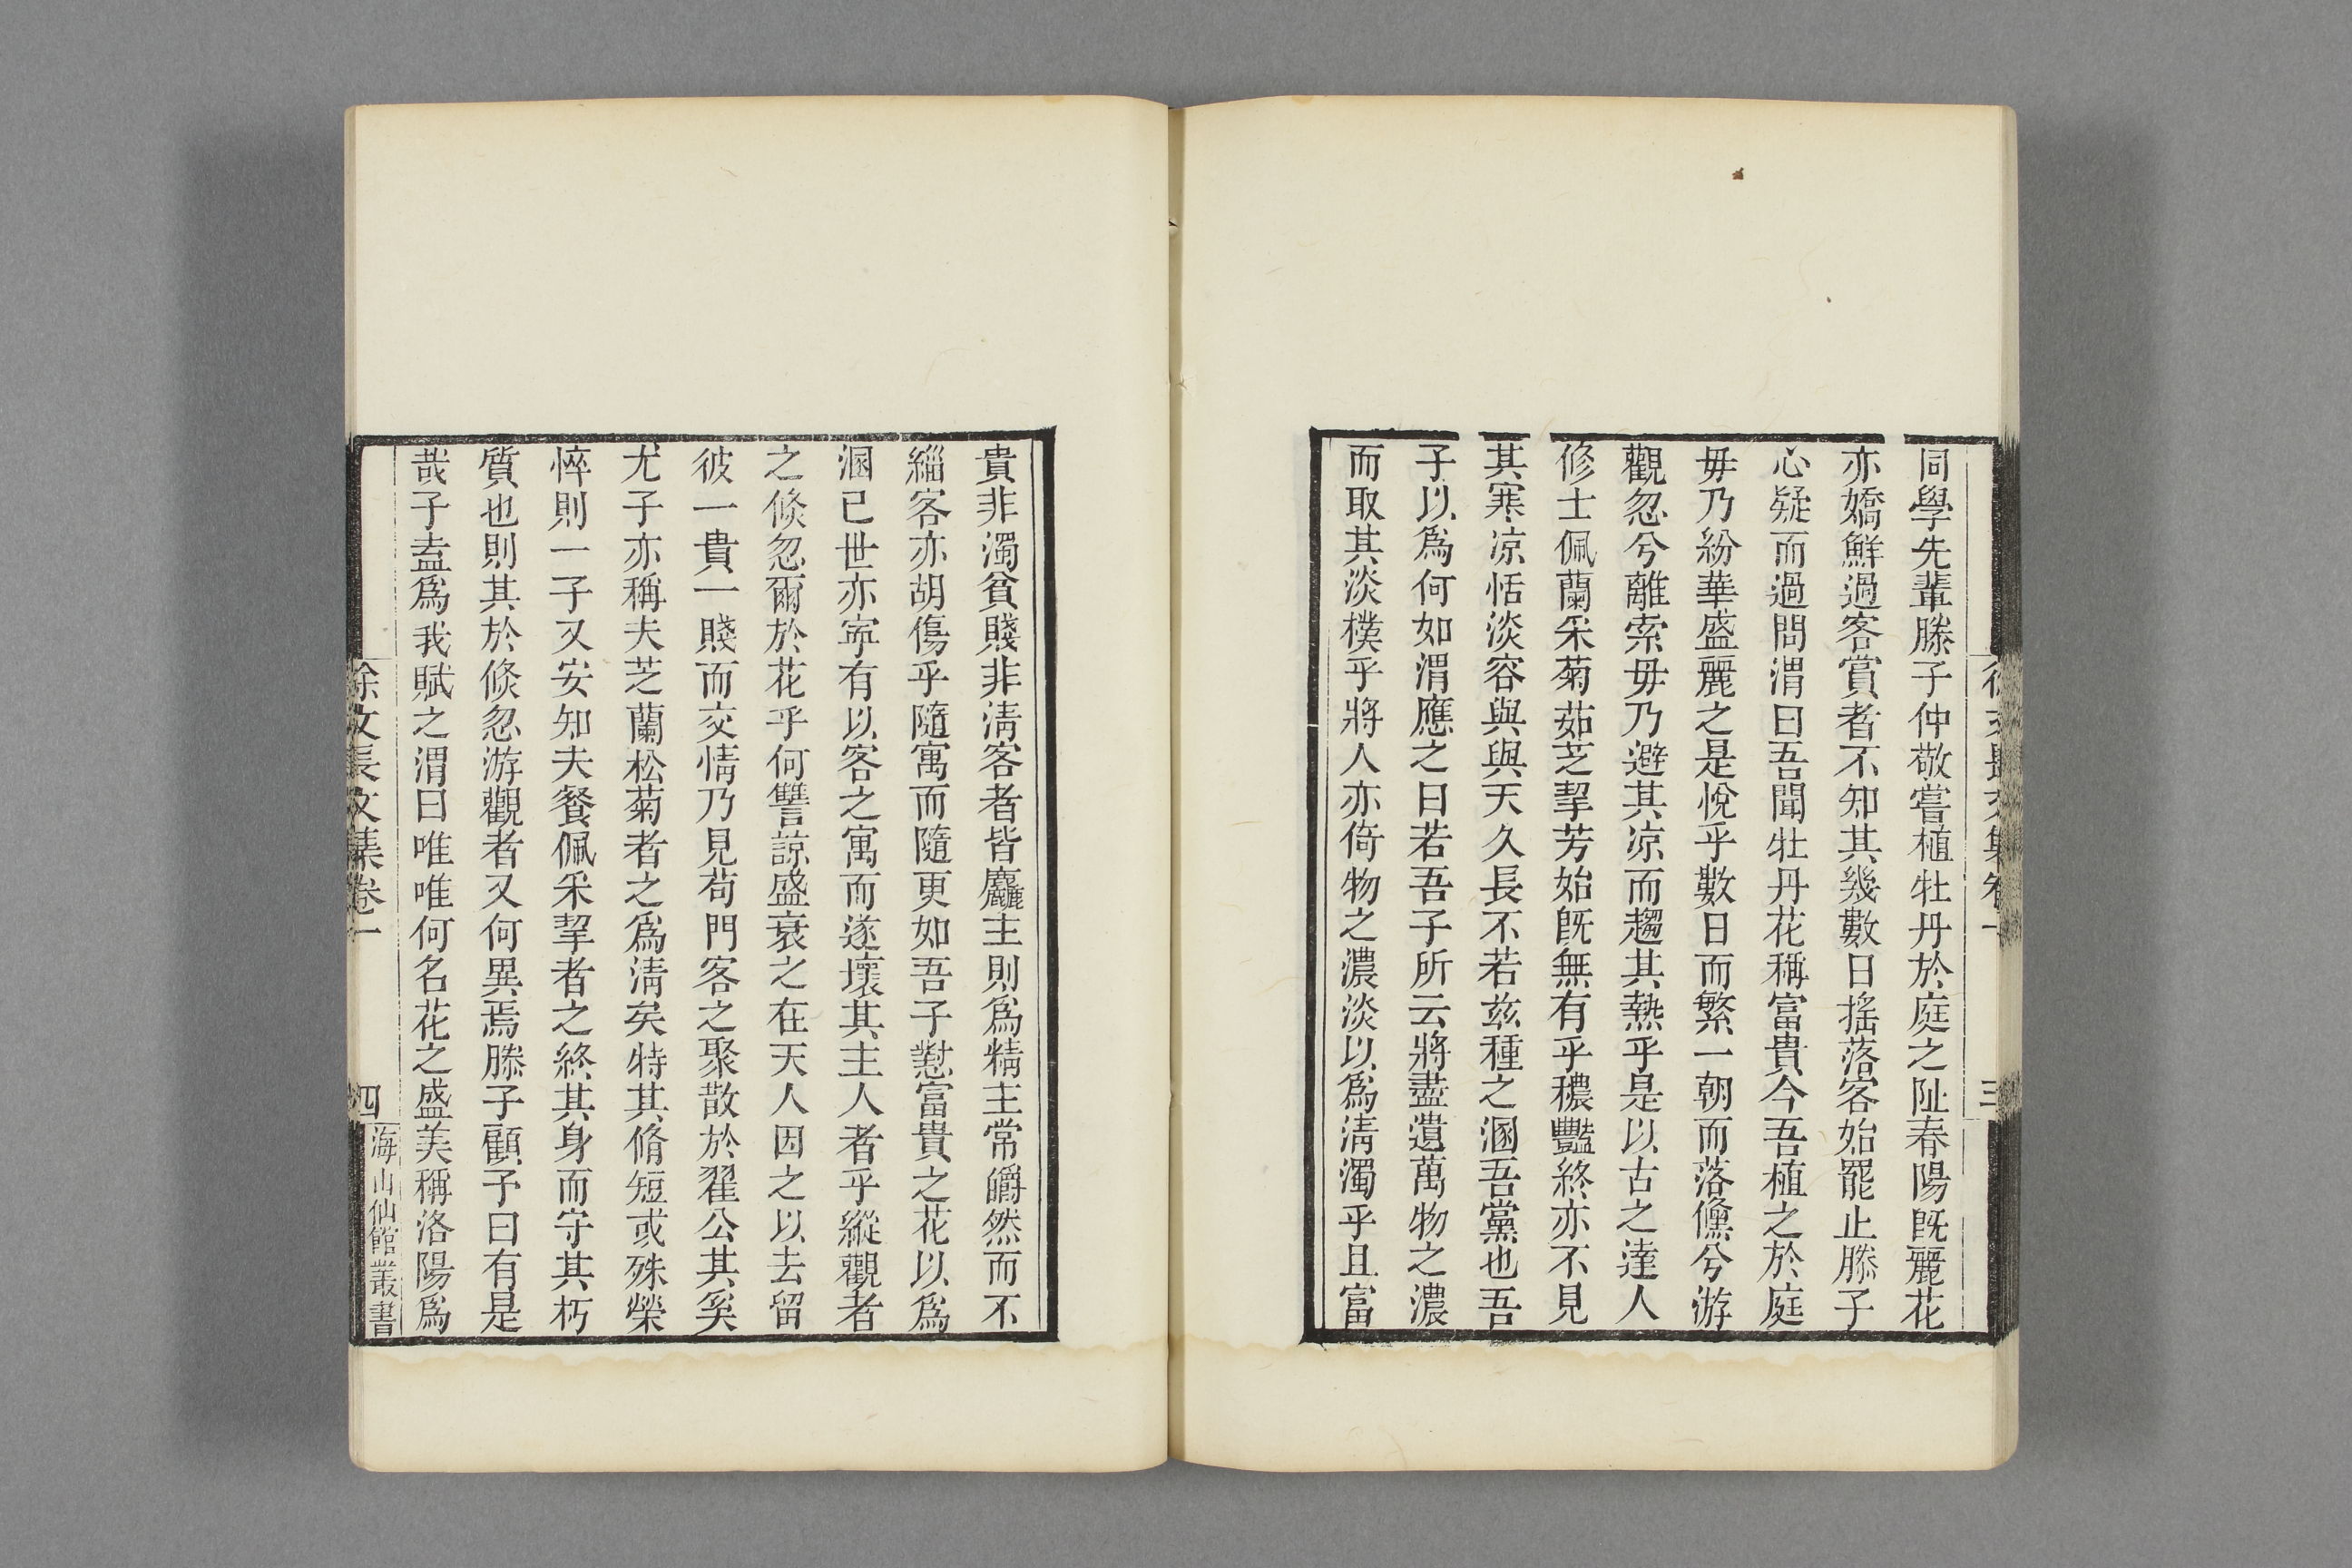 同學先輩滕子仲敬嘗植牡丹於庭之阯春陽旣麗花
亦嬌鮮過客賞者不知其幾數日搖落客始罷止滕子
心疑而過問渭曰吾聞牡丹花稱富貴今吾植之於庭
毋乃紛華盛麗之是悅乎數日而繁一朝而落儻兮游
觀忽兮離索毋乃避其凉而趨其熱乎是以古之達人
修士佩蘭采菊茹芝挐芳始旣無有乎穠豔終亦不見
其寒凉恬淡容與與天久長不若玆種之溷吾黨也吾
子以爲何如渭應之曰若吾子所云將盡遺萬物之濃
而取其淡樸乎將人亦倚物之濃淡以爲清濁乎且富
徐文長文集卷一
三
貴非濁貧賤非清客者皆麤主則爲精主常皭然而不
緇客亦胡傷乎隨寓而隨更如吾子懟富貴之花以爲
溷已世亦寧有以客之寓而遂壞其主人者乎縱觀者
之倐忽爾於花乎何讐諒盛衰之在天人因之以去留
彼一貴一賤而交情乃見苟門客之聚散於翟公其奚
尤子亦稱夫芝蘭松菊者之爲清矣特其脩短或殊榮
悴則一子又安知夫餐佩采挐者之終其身而守其朽
質也則其於倐忽游觀者又何異焉滕子顧予曰有是
哉子盍爲我賦之渭曰唯唯何名花之盛美稱洛陽爲
徐文長文集卷一
四
海山仙館叢書